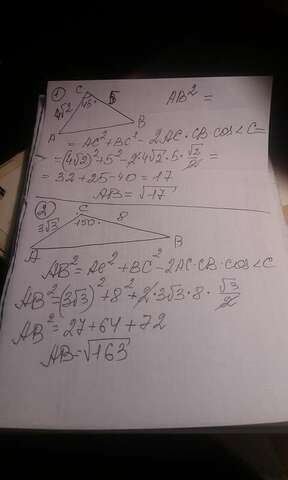 ① C
4√2 45° 5 AB² =
A B
= AC² + BC² - 2AC · CB · cos < C =
= (4√2)² + 5² - 2 · 4√2 · 5 · √2/2 =
= 32 + 25 - 40 = 17
AB = √17
② C
3√3 150° 8
A B
AB² = AC² + BC² - 2AC · CB · cos < C
AB² = (3√3)² + 8² + 2 · 3√3 · 8 · √3/2
AB² = 27 + 64 + 72
AB = √163